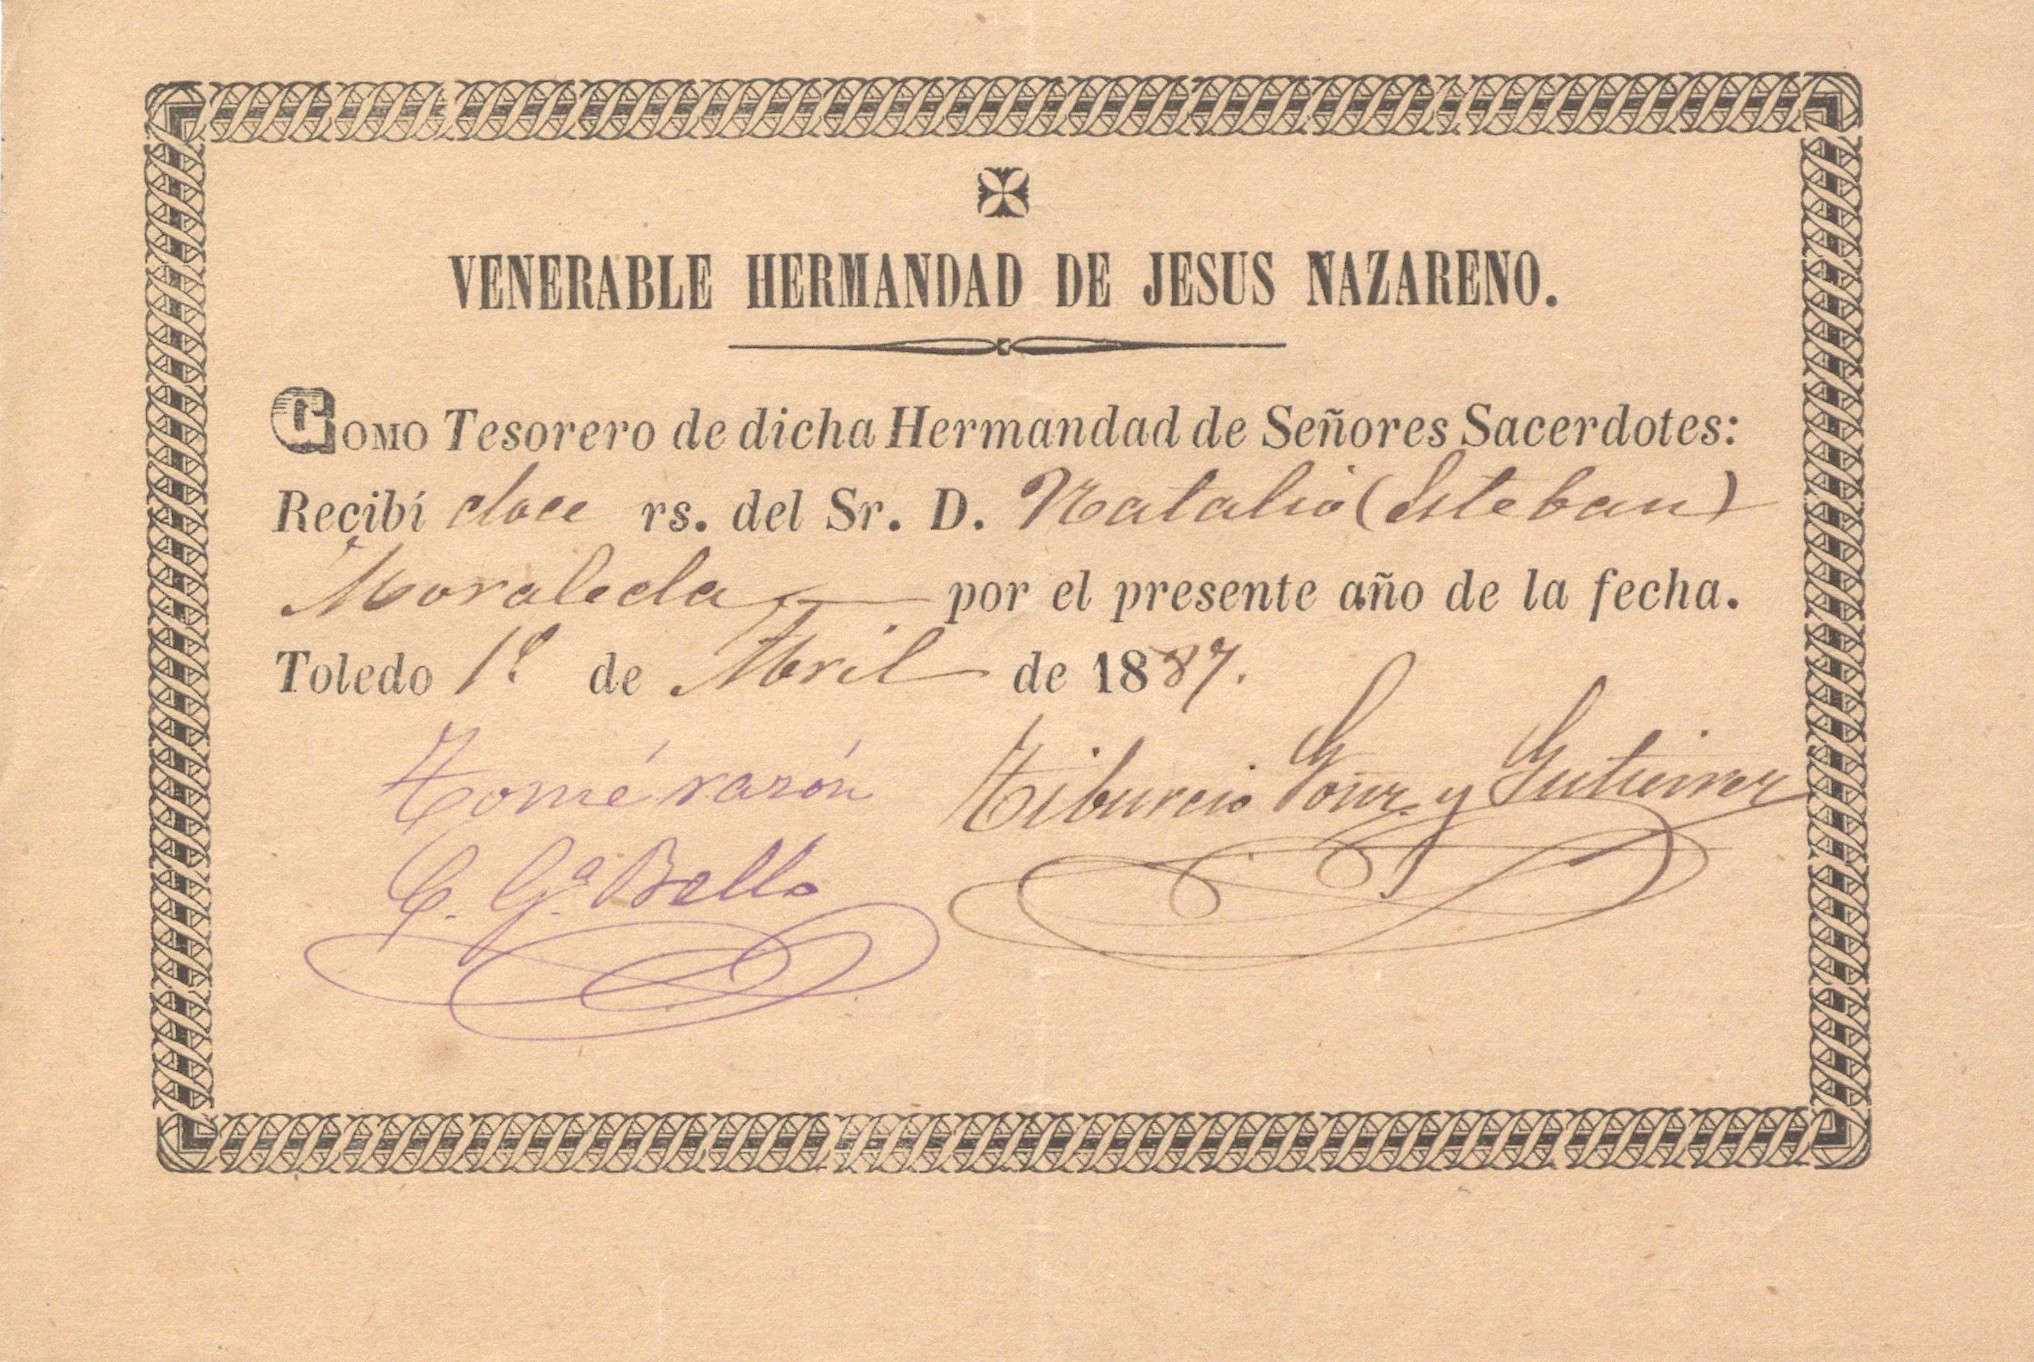 VENERABLE HERMANDAD DE JESUS NAZARENO.
COMO Tesorero de dicha Hermandad de Señores Sacerdotes:
Recibí doce rs. del Sr. D. Natalio (Esteban)
Moraleda por el presente año de la fecha.
Toledo 1º de Abril de 1887.
Tomé razón
Tiburcio Gonz. y Gutierrez
C. Gª Bello